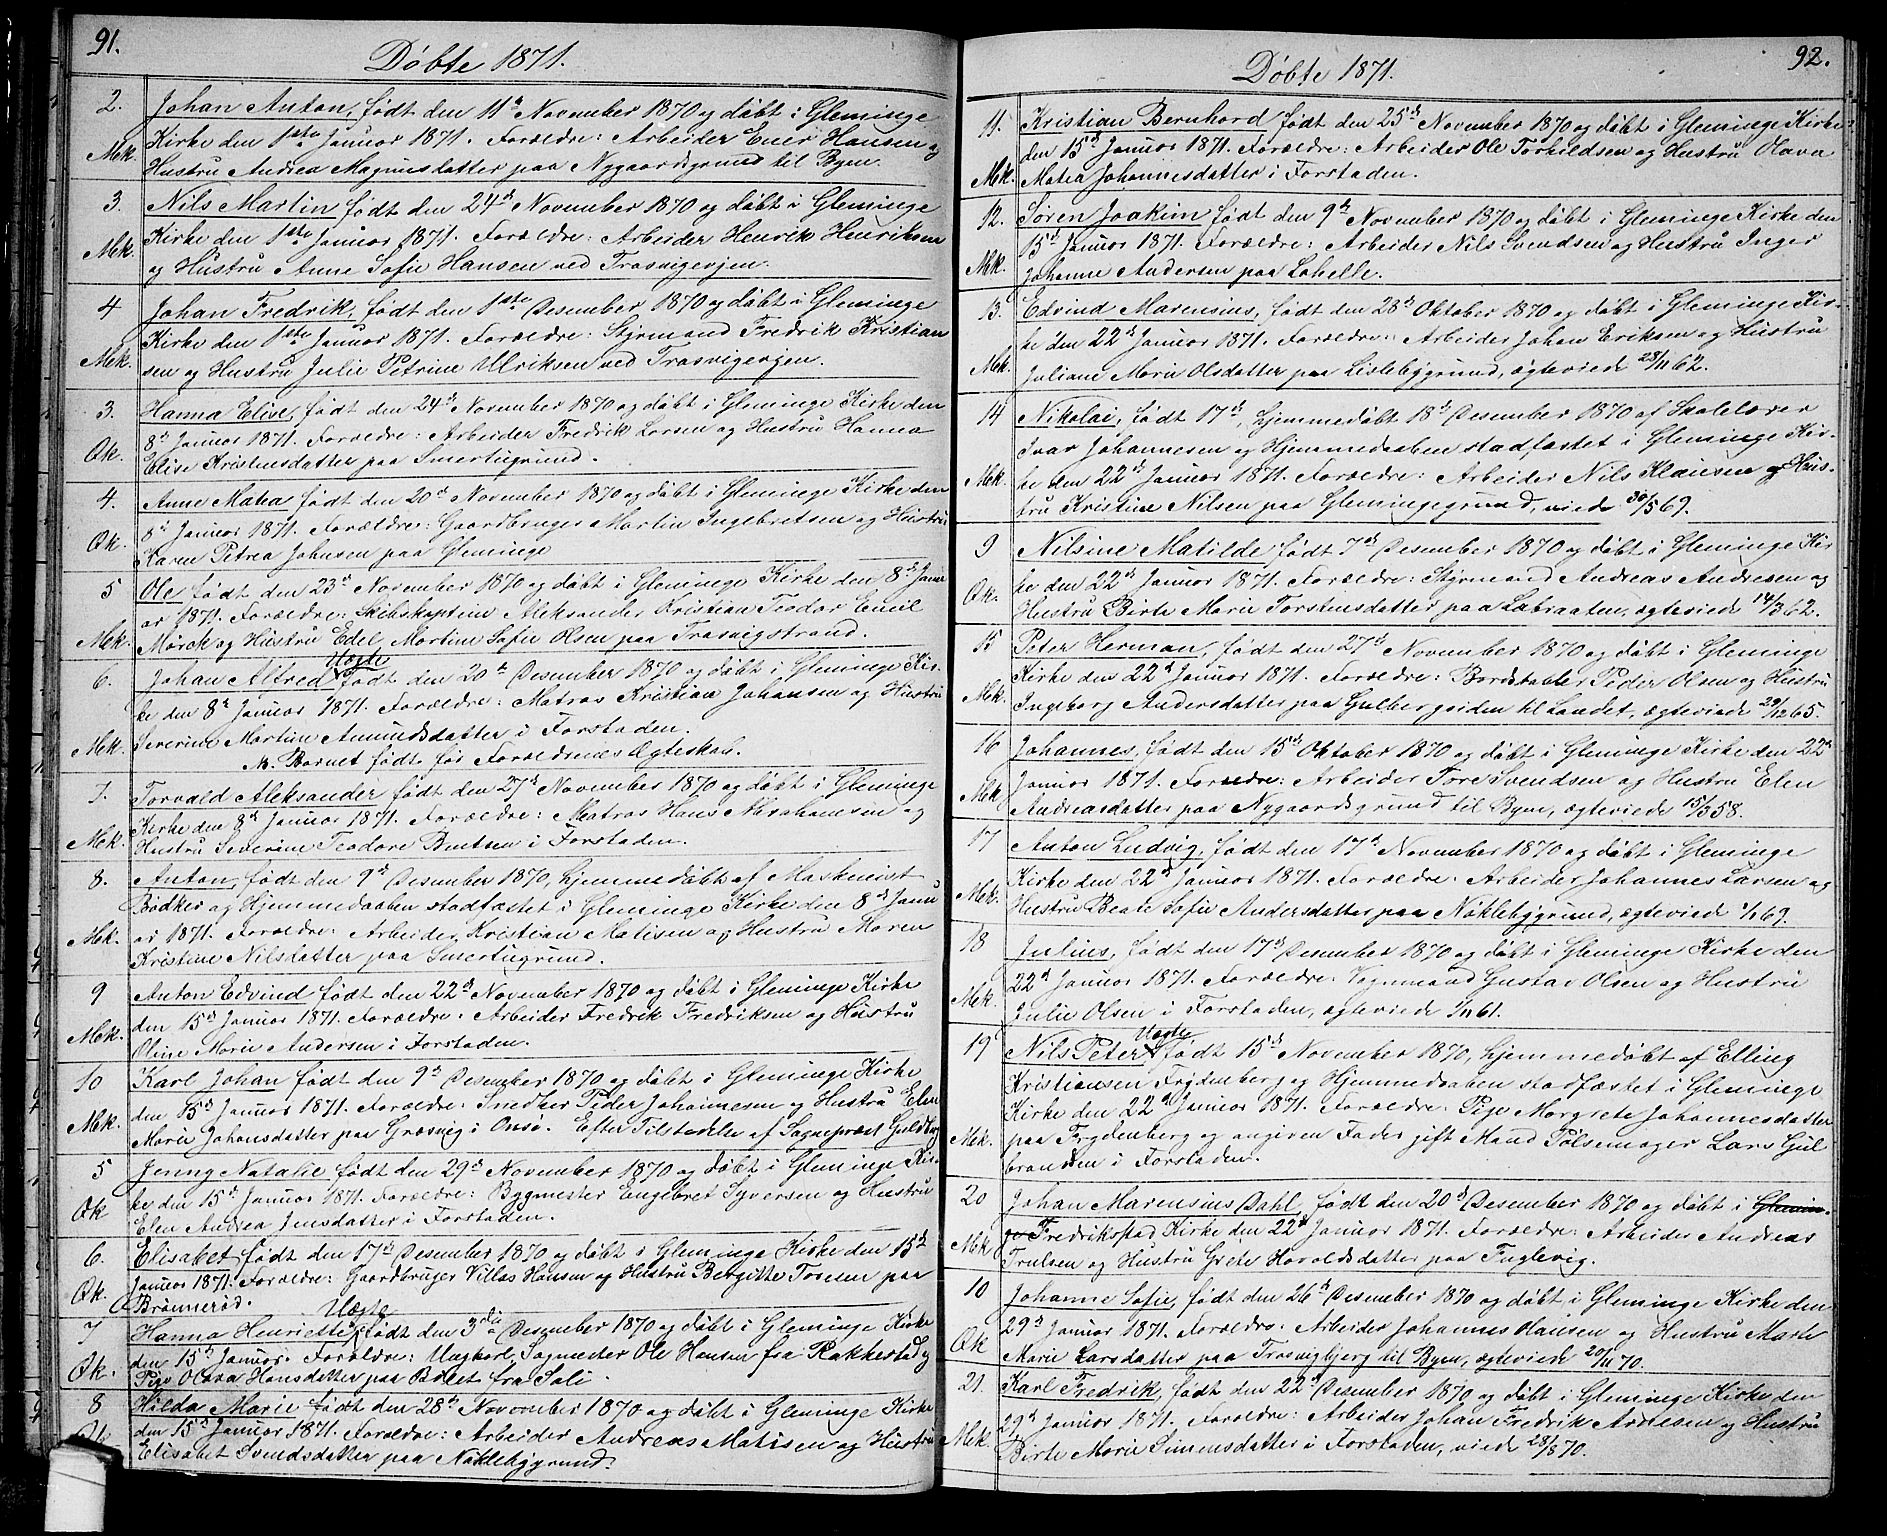 91.
Döbte 1871.
2. Johan Anton, født den 11te November 1870 og døbt i Gleminge
Kirke den 1ste Januar 1871. Forældre: Arbeider Hansen og
Mk. Hustru Andrea Magnusdatter paa Nygaardsgrund til Byen.
3. Nils Martin født den 24de November 1870 og døbt i Gleminge
Mk. Kirke den 1ste Januar 1871. Forældre: Arbeider Henrik Henriksen
og Hustru Anne Sofie Hansen ved Trosvigevjen.
4 Johan Fredrik, født den 1ste Desember 1870 og døbt i Gleminge
Kirke den 1ste Januar 1871. Forældre: Styrmand Fredrik Kristian
Mk. sen og Hustru Julie Petrine Ulriksen ved Trosvigevjen.
3. Hanna Elise, født den 24de November 1870 og døbt i Gleminge Kirke den
8de Januar 1871. Forældre: Arbeider Fredrik Larsen og Hustru Hanna
Qk. Elise Kristensdatter paa Smertugrund.
4. Anne Matea født den 20de November 1870 og døbt i Gleminge Kirke den
8de Januar 1871. Forældre: Gaardbruger Martin Ingebretsen og Hustru
Qk. Karen Petrea Johnsen paa Gleminge
5 Ole født den 23de November 1870 og døbt i Gleminge Kirke den 8de Janu
ar 1871. Forældre: Skibskaptein Aleksander Kristian Teodor Emil
Mk. Mørck og Hustru Edel Martine Sofie Olsen paa Trosvigstrand.
Uægte
6. Johan Alfred født den 20de Desember 1870 og døbt i Gleminge Kir-
ke den 8de Januar 1871. Forældre: Matros Kristian Johansen og Hustru
Mk. Severine Martine Amundsdatter i Forstaden.
Nb. Barnet født før Forældrenes Ægteskab.
7. Torvald Aleksander født den 27de November 1870 og døbt i Gleminge
Kirke den 8de Januar 1871. Forældre: Matros Hans Abrahamsen og
Mk. Hustru Severine Teodore Bentsen i Forstaden.
8. Anton, født den 9de Desember 1870, hjemmedøbt af Maskinist
Bødker og Hjemmedaaben stadfæstet i Gleminge Kirke den 8de Janu
Mk. ar 1871. Forældre: Arbeider Kristian Matisen og Hustru Maren
Kristine Nilsdatter paa Smertugrund.
9 Anton Edvind født den 22de November 1870 og døbt i Gleminge Kirke
den 15de Januar 1871. Forældre: Arbeider Fredrik Fredriksen og Hustru
Mk. Oline Marie Andersen i Forstaden.
10 Karl Johan født den 9de Desember 1870 og døbt i Gleminge Kirke
Mk. den 15de Januar 1871. Forældre: Snedker Peder Johannesen og Hustru Elen
Marie Johansdatter paa Græsvig i Onsø. Efter Tilstedelse af Sogneprest Guldberg
5 Jenny Natalie født den 29de November 1870 og døbt i Gleminge Kir-
Qk ke den 15de Januar 1871. Forældre: Bygmester Engebret Syversen og Hustru
Elen Andrea Jensdatter i Forstaden.
6. Elisabet født den 17de Desember 1870 og døbt i Gleminge Kirke den 15de
Qk. Januar 1871. Forældre: Gaardbruger Villas Hansen og Hustru Bergitte Toresen paa
Brønnerød.
Uægte
7 Hanna Henriette født den 3die Desember 1870 og døbt i Gleminge Kirke
den 15de Januar. Forældre: Ungkarl Sagmester Ole Hansen fra Rakkestad og
Qk. Pige Olava Hansdatter paa fra Soli.
8 Hilda Marie født den 28de November 1870 og døbt i Gleminge Kirke
den 15de Januar 1871. Forældre: Arbeider Andreas Matisen og Hustru
Qk. Elisabet Svendsdatter paa Nøklebygrund.
92.
Döbte 1871.
11. Kristian Bernhard født den 25de November 1870 og døbt i Gleminge Kirke
den 15de Januar 1871. Forældre: Arbeider Ole Torkildsen og Hustru Olava
Mk. Matea Johannesdatter i Forstaden.
12. Søren Joakim født den 9de November 1870 og døbt i Gleminge Kirke den
15de Januar 1871. Forældre: Arbeider Nils Svendsen og Hustru Inger
Mk. Johanne Andersen paa Lahelle.
13. Edvind Marensius, født den 28de Oktober 1870 og døbt i Gleminge Kir-
ke den 22de Januar 1871. Forældre: Arbeider Johan Eriksen og Hustru
Mk. Juliane Marie Olsdatter paa Lislebygrund, ægteviede 28/11 62.
14 Nikolai, født 17de, hjemmedøbt 18de Desember 1870 af Skolelærer
Ivar Johannesen og Hjemmedaaben stadfæstet i Gleminge Kir-
Mk. ke den 22de Januar 1871. Forældre: Arbeider Nils Klausen og Hus-
tru Kristine Nilsen paa Glemingegrund, viede 30/5 69.
9 Nilsine Matilde født 7de Desember 1870 og døbt i Gleminge Kir
ke den 22de Januar 1871. Forældre: Styrmand Andreas Andresen og
Qk. Hustru Birte Marie Torstensdatter paa Labraaten, ægteviede 14/3 62.
15 Peter Herman, født den 27de November 1870 og døbt i Gleminge
Kirke den 22de Januar 1871. Forældre: Bordstabler Peder Olsen og Hustru
Mk. Ingeborg Andersdatter paa Gulbergsiden til Landet, ægteviede 29/12 65.
16 Johannes, født den 15de Oktober 1870 og døbt i Gleminge Kirke den 22de
Mk Januar 1871. Forældre: Arbeider Tore Svendsen og Hustru Elen
Andreasdatter paa Nygaardsgrund til Byen, ægteviede 15/3 58.
17 Anton Ludvig, født den 17de November 1870 og døbt i Gleminge
Kirke den 22de Januar 1871. Forældre: Arbeider Johannes Larsen og
Mk. Hustru Beate Sofie Andersdatter paa Nøklebygrund, ægteviede 1/1 69.
18 Julius, født den 17de Desember 1870 og døbt i Gleminge Kirke den
22de Januar 1871. Forældre: Vognmand Gustav Olsen og Hustru
Mk. Julie Olsen i Forstaden, ægteviede 1/11 61.
Uægte
19 Nils Peter, født 15de November 1870, hjemmedøbt af Elling
Kristiansen Frydenberg og Hjemmedaaben stadfæstet i Gleminge
Kirke den 22de Januar 1871. Forældre: Pige Margrete Johannesdatter
Mk. paa Frydenberg og angiven Fader gift Mand Pølsemager Lars Gul
brandsen i Forstaden.
20 Johan Marensius Dahl, født den 20de Desember 1870 og døbt i Glemin-
ge Fredrikstad Kirke den 22de Januar 1871. Forældre: Arbeider Andreas
Mk Trulsen og Hustru Grete Haraldsdatter paa Fuglevig.
10 Johanne Sofie, født den 26de Desember 1870 og døbt i Gleminge Kirke den
29de Januar 1871. Forældre: Arbeider Johannes Hansen og Hustru Marte
Qk Marie Larsdatter paa Trosvigbjerg til Byen, ægteviede 20/11 70.
21. Karl Fredrik, født den 22de Desember 1870 og døbt i Gleminge Kirke den
29de Januar 1871. Forældre: Arbeider Johan Fredrik Arntsen og Hustru
Mk. Birte Marie Simensdatter i Forstaden, viede 28/8 70.